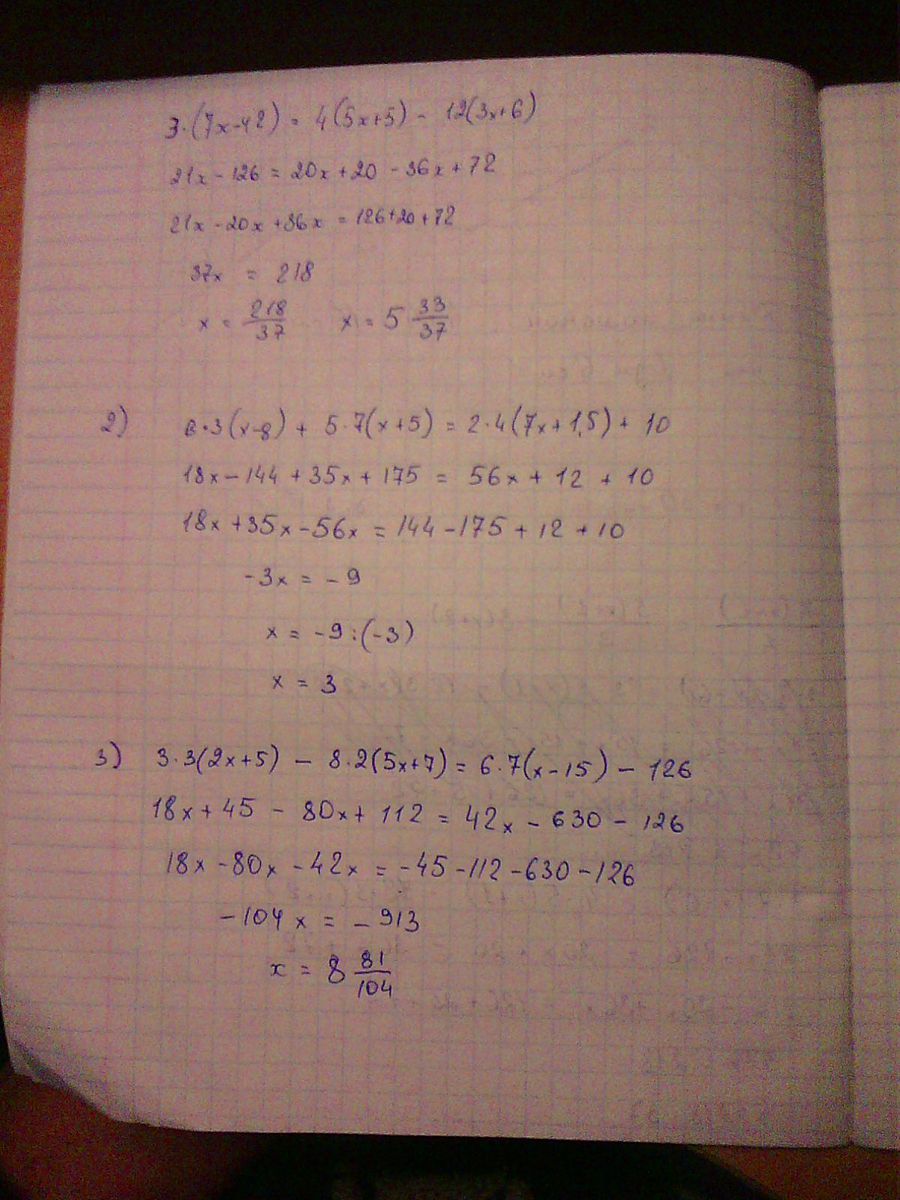 3·(7x-42) = 4(5x+5) - 12(3x+6)
21x - 126 = 20x + 20 - 36x + 72
21x - 20x + 36x = 126 + 20 + 72
37x = 218
x = 218/37 x = 5 33/37
2) 6·3(x-8) + 5·7(x+5) = 2·4(7x+1,5) + 10
18x - 144 + 35x + 175 = 56x + 12 + 10
18x + 35x - 56x = 144 - 175 + 12 + 10
-3x = -9
x = -9:(-3)
x = 3
3) 3·3(2x+5) - 8·2(5x+7) = 6·7(x-15) - 126
18x + 45 - 80x + 112 = 42x - 630 - 126
18x - 80x - 42x = -45 - 112 - 630 - 126
-104x = -913
x = 8 81/104